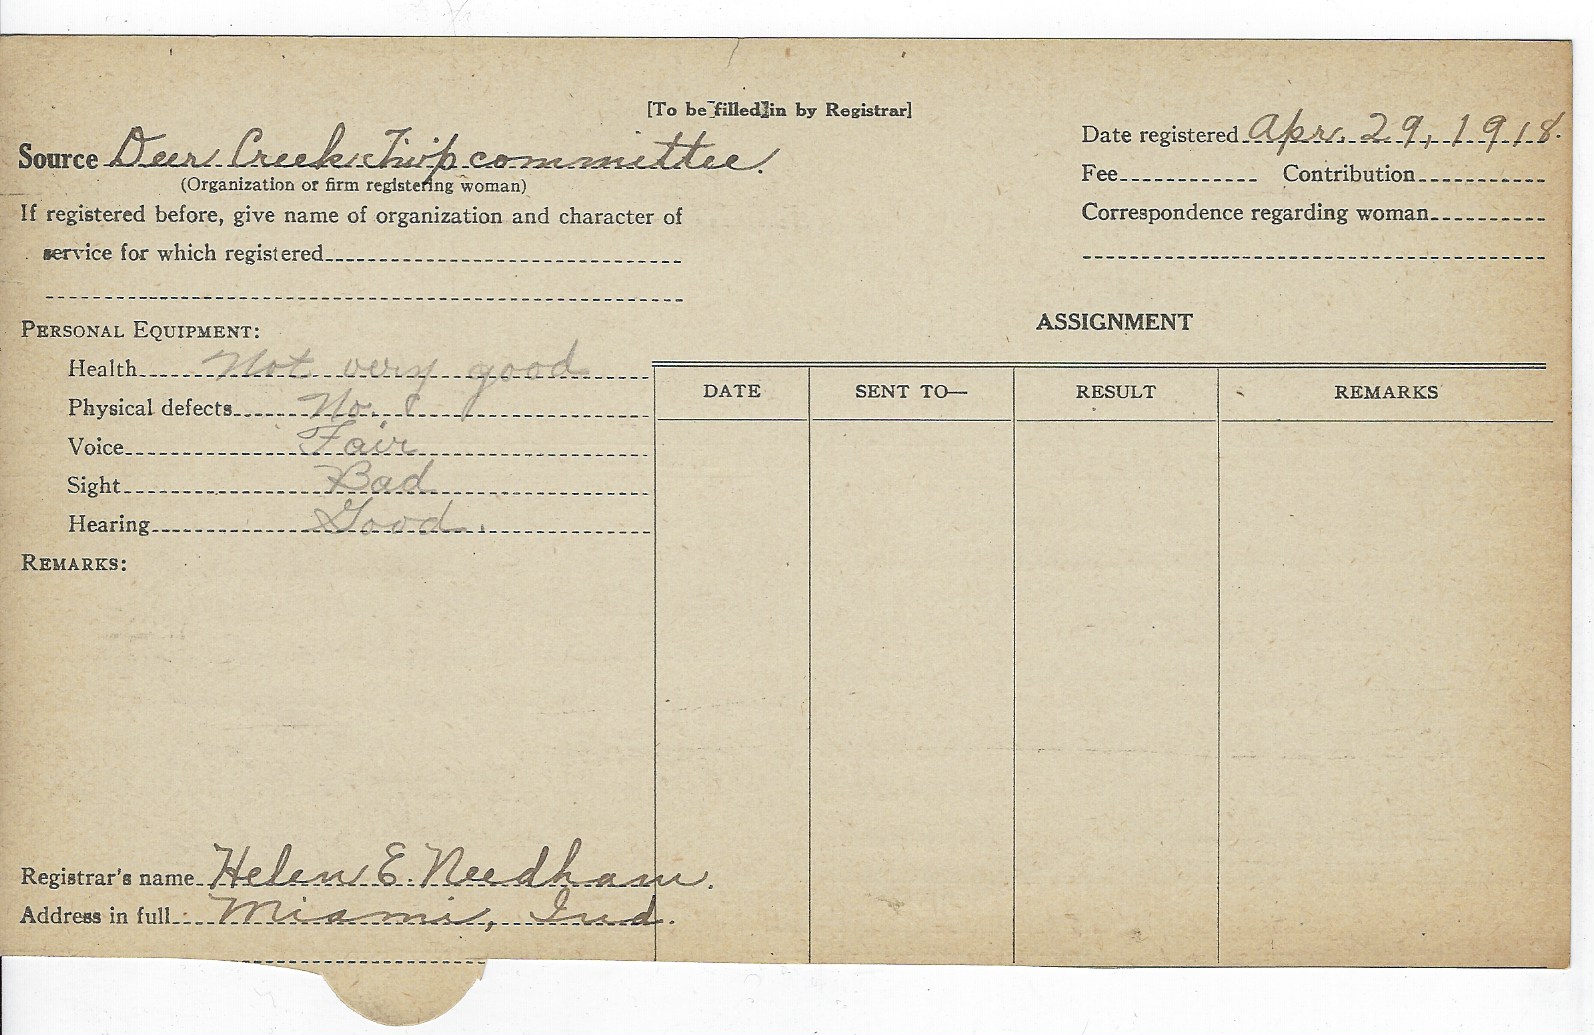 [To be filled in by Registrar]
Source Deer Creek Twp committee.
(Organization or firm registering woman)
If registered before, give name of organization and character of
service for which registered
Date registered Apr. 29, 1918.
Fee Contribution
Correspondence regarding woman
PERSONAL EQUIPMENT:
Health Not very good
Physical defects No.
Voice Fair
Sight Bad
Hearing Good.
REMARKS:
ASSIGNMENT
DATE SENT TO— RESULT REMARKS
Registrar's name Helen E. Needham.
Address in full Miami, Ind.